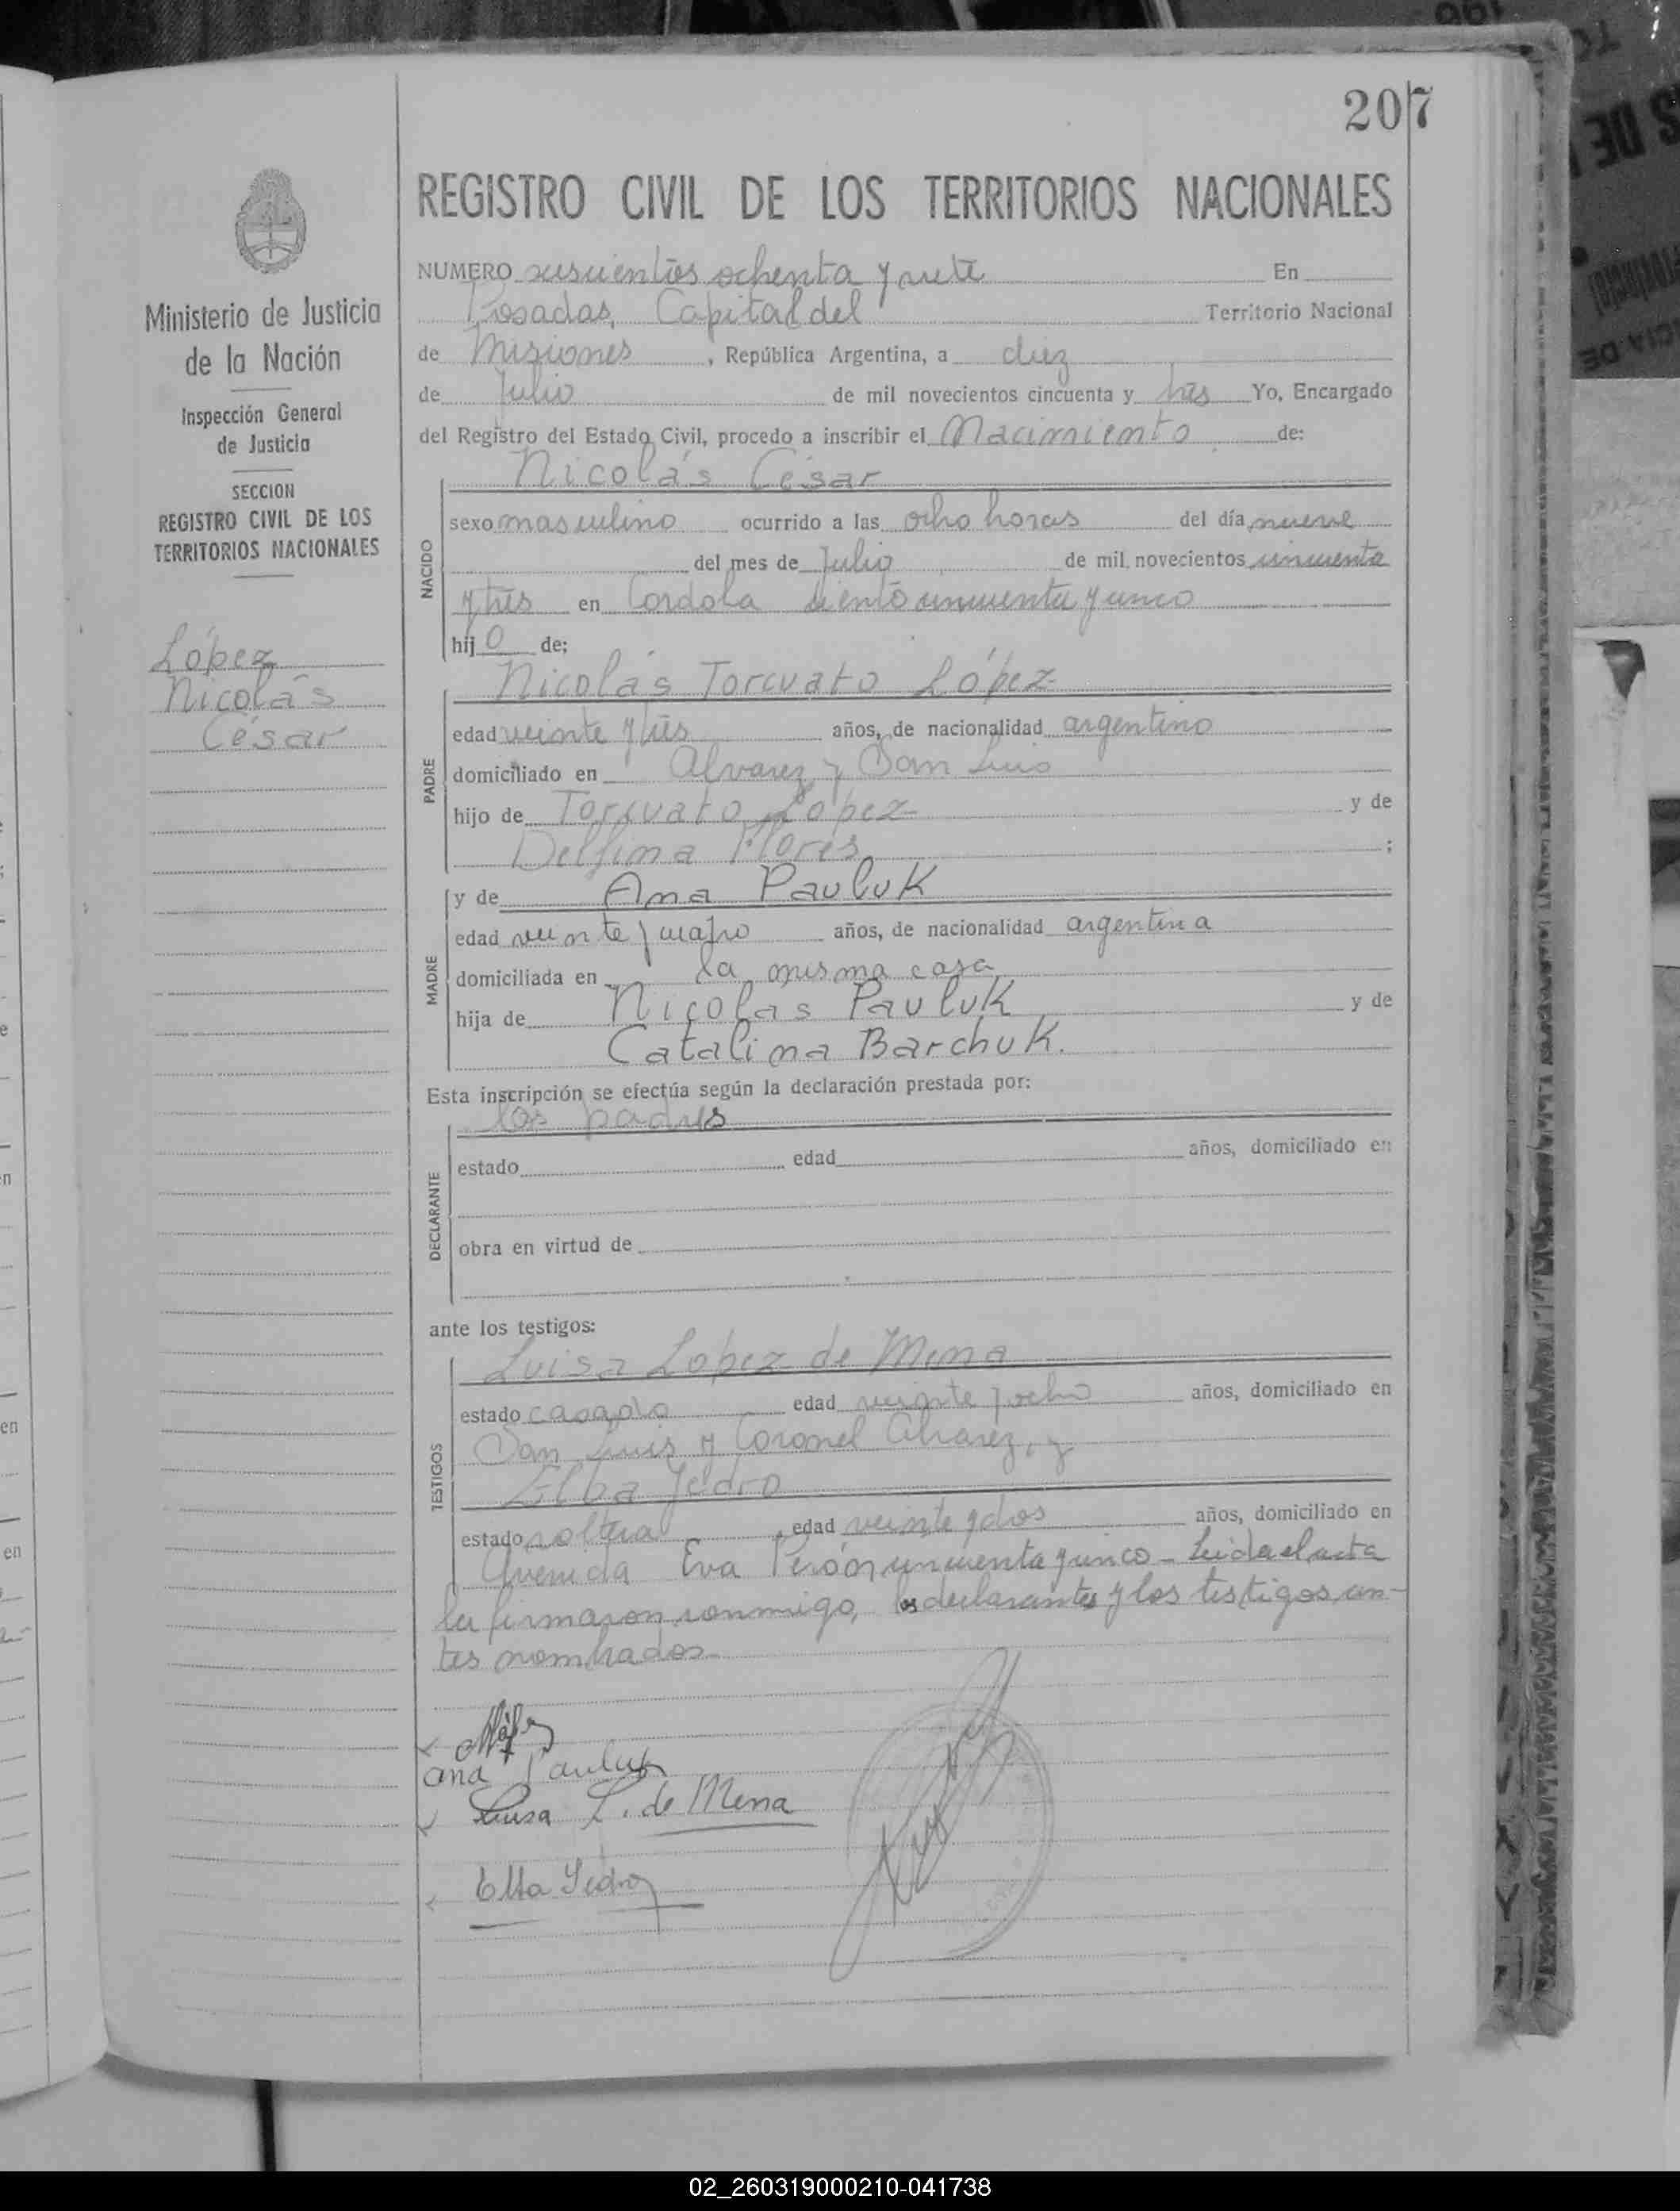 207
REGISTRO CIVIL DE LOS TERRITORIOS NACIONALES
Ministerio de Justicia
de la Nación
Inspección General
de Justicia
SECCION
REGISTRO CIVIL DE LOS
TERRITORIOS NACIONALES
López
Nicolás
César
NUMERO seiscientos ochenta y siete En
Posadas, Capital del Territorio Nacional
de Misiones, República Argentina, a diez
de Julio de mil novecientos cincuenta y tres Yo, Encargado
del Registro del Estado Civil, procedo a inscribir el Nacimiento de:
Nicolás César
NACIDO
sexo masculino ocurrido a las ocho horas del día nueve
del mes de Julio de mil novecientos cincuenta
y tres en Cordoba ciento cincuenta y cinco
hijo de:
Nicolás Torcuato López
PADRE
edad veinte y tres años, de nacionalidad argentino
domiciliado en Alvarez y San Luis
hijo de Torcuato López y de
Delfina Flores;
y de Ana Pauluk
MADRE
edad veinte y cuatro años, de nacionalidad argentina
domiciliada en la misma casa
hija de Nicolas Pauluk y de
Catalina Barchuk.
Esta inscripción se efectúa según la declaración prestada por:
los padres
DECLARANTE
estado edad años, domiciliado en
obra en virtud de
ante los testigos:
Luisa Lopez de Mena
TESTIGOS
estado casada edad veinte y ocho años, domiciliado en
San Luis y Coronel Alvarez, y
Elba Yedro
estado soltera, edad veinte y dos años, domiciliado en
Avenida Eva Perón cincuenta y cinco - Leida el acta
la firmaron conmigo, los declarantes y los testigos an-
tes nombrados.-
Ana Pauluk
Luisa L. de Mena
Elba Yedro
02_260319000210-041738